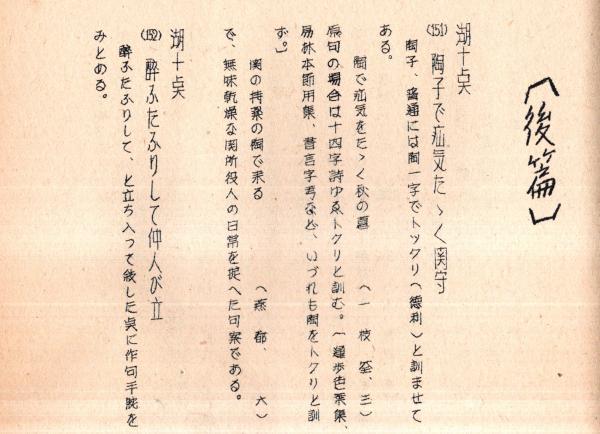 〔後篇〕
湖十点
(151) 陶子で疝気たゝく関守
陶子、普通には陶一字でトックリ（徳利）と訓ませて
ある。
陶で疝気をたゝく秋の暮　（一枝筌、三）
原句の場合は十四字詩ゆゑトクリと訓む。（運歩色葉集、
易林本節用集、書言字考など、いづれも陶をトクリと訓
ず。）
関の博奕の陶で来る　（燕都、六）
で、無味乾燥な関所役人の日常を捉へた句案である。
湖十点
(152) 酔ふたふりして仲人が立
酔ふたふりして、と立ち入って叙した点に作句手腕を
みとめる。